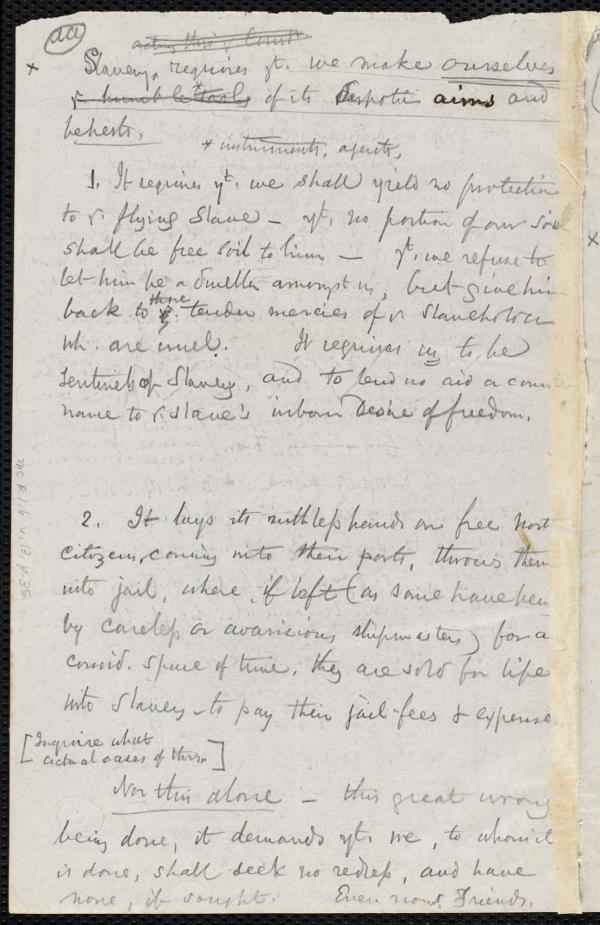 aa
acting thro' y Const.
x Slavery, requires yt. we make ourselves
y humble tools of its despotic aims and
behests.
* instruments, agents,
1. It requires yt. we shall yield no protection
to y flying Slave – yt. no portion of our soil
shall be free soil to him – yt. we refuse to
let him be a dweller amongst us, but give him
back to those tender mercies of y slaveholder
wh. are cruel. It requires us to be
sentinels of Slavery, and to lend no aid or
name to y slave's inborn desire of freedom.
2. It lays its ruthless hands on free North
citizens, coming into their ports, throws them
into jail, where, if left (as some have been
by careless or avaricious shipmasters) for a
consid. space of time, they are sold for life
into Slavery – to pay their jail-fees & expense
[Inquire what
actual cases of this]
Nor this alone – this great wrong
being done, it demands yt. we, to whom it
is done, shall seek no redress, and have
none, if sought. Even now, Friends,
Ms. B.1.6 v.13, p.35